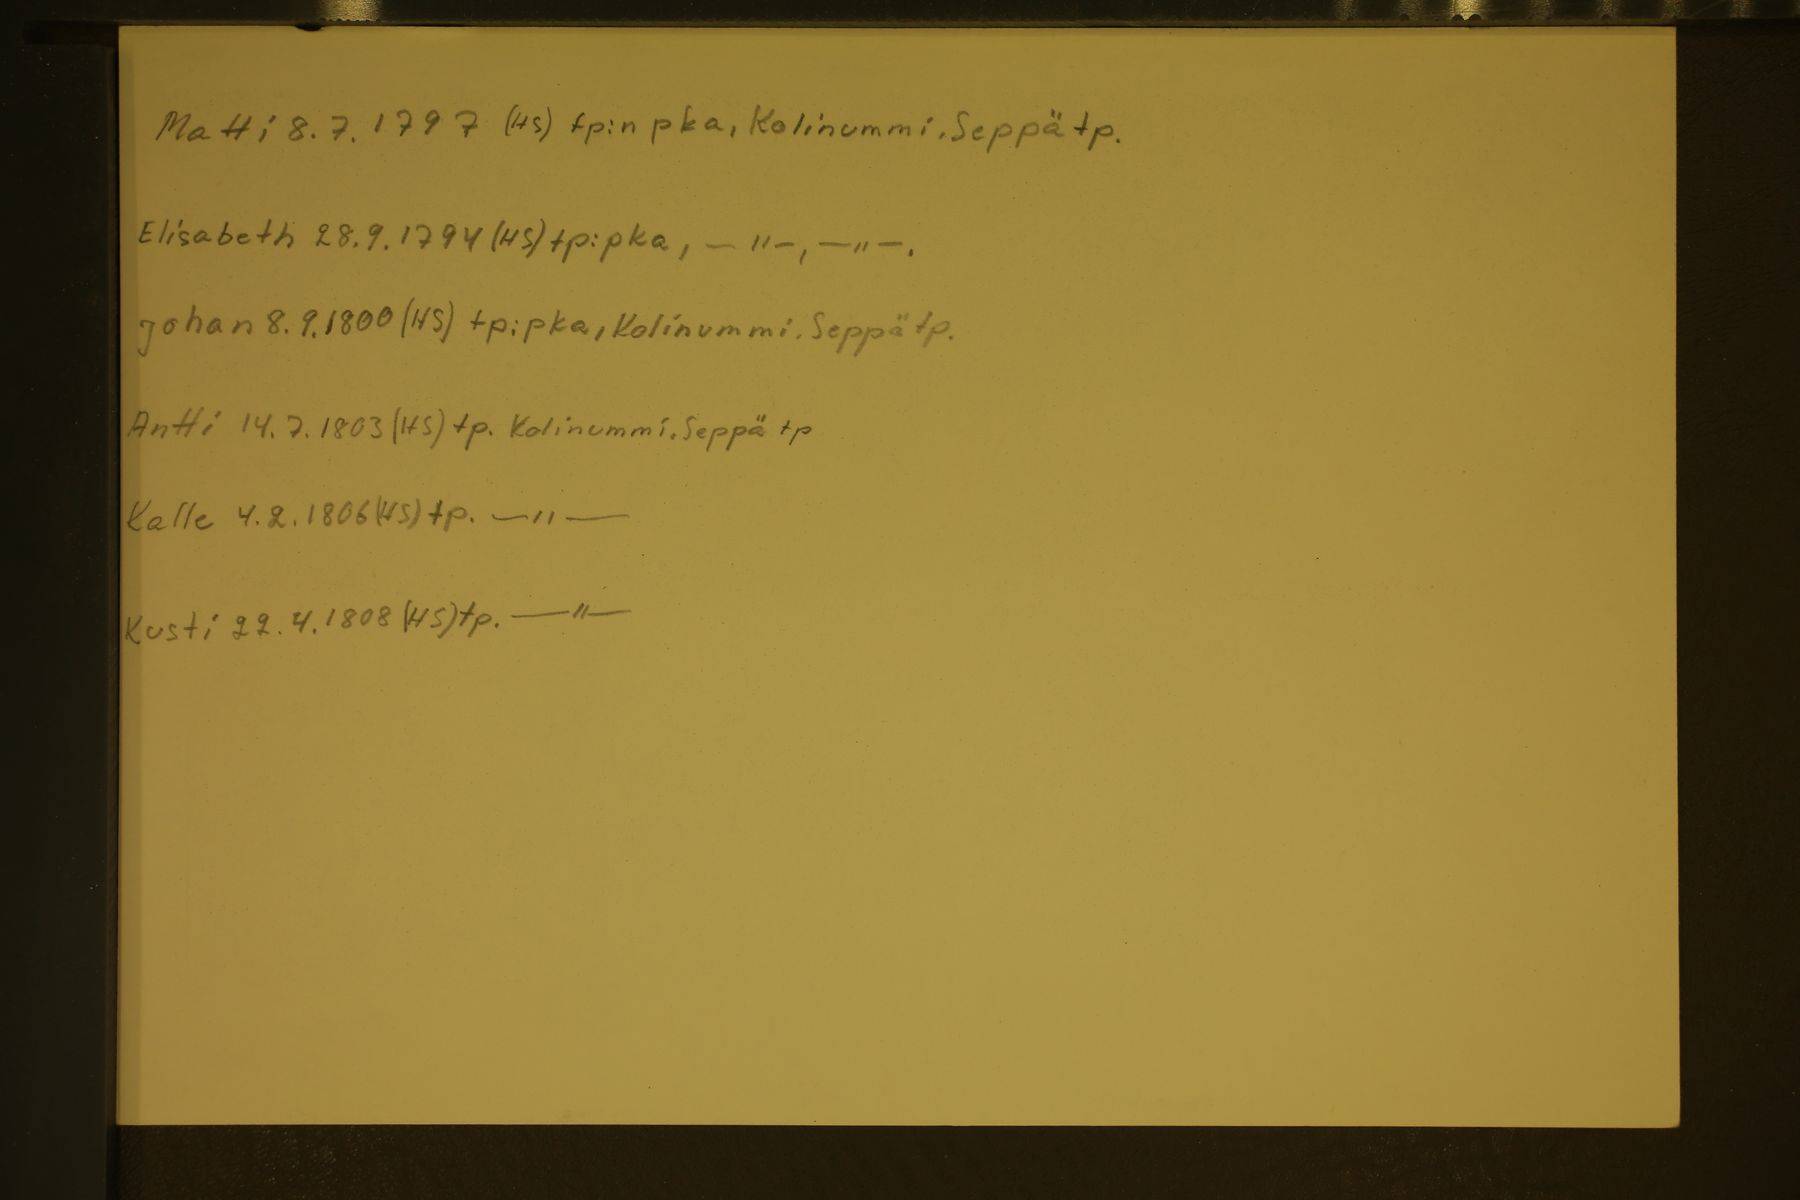 Matti 8.7.1797 (HS) tp:n pka, Kolinummi. Seppä tp.
Elisabeth 28.9.1794 (HS) tp:pka, — " —, — " —.
Johan 8.9.1800 (HS) tp:pka, Kolinummi. Seppä tp.
Antti 14.7.1803 (HS) tp. Kolinummi. Seppä tp
Kalle 4.2.1806 (HS) tp. — " —
Kusti 22.4.1808 (HS) tp. — " —